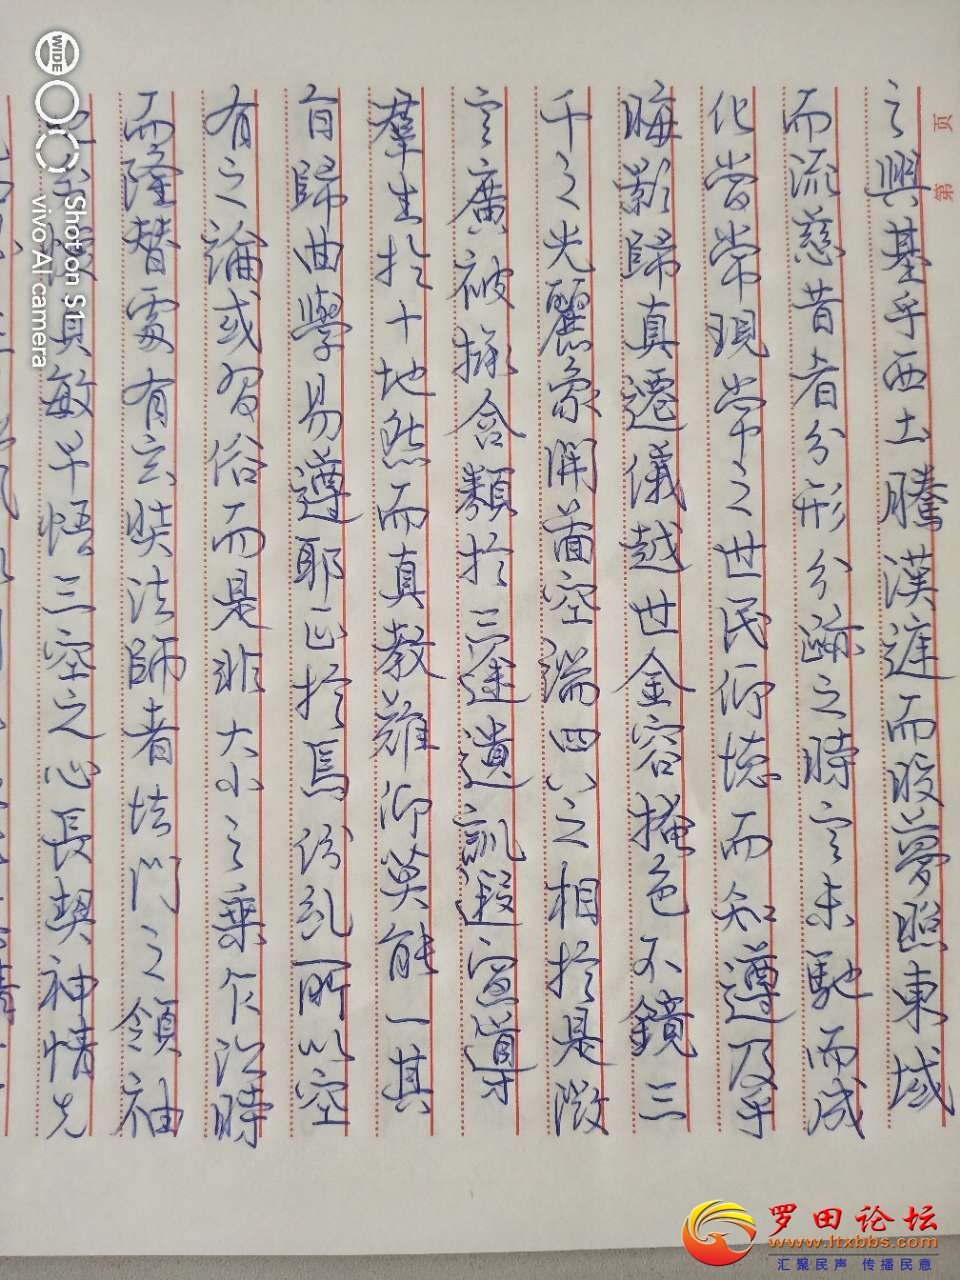 页
第
之興基乎西土騰漢庭而皎夢照東域
而流慈昔者分形分跡之時言未馳而成
化當常現常之世民仰德而知遵及乎
晦影歸真遷儀越世金容掩色不鏡三
千之光麗象開圖空端四八之相於是微
言廣被拯含類於三途遺訓遐宣導
羣生於十地然而真教難仰莫能一其
旨歸曲學易遵耶正於焉紛糺所以空
有之論或習俗而是非大小之乘乍沿時
而隆替爰有玄奘法師者法門之領袖
貞敏早悟三空之心長契神情先
WIDE
Shot on S1
vivo AI camera
罗田论坛
www.ltxbbs.com
汇聚民声 传播民意